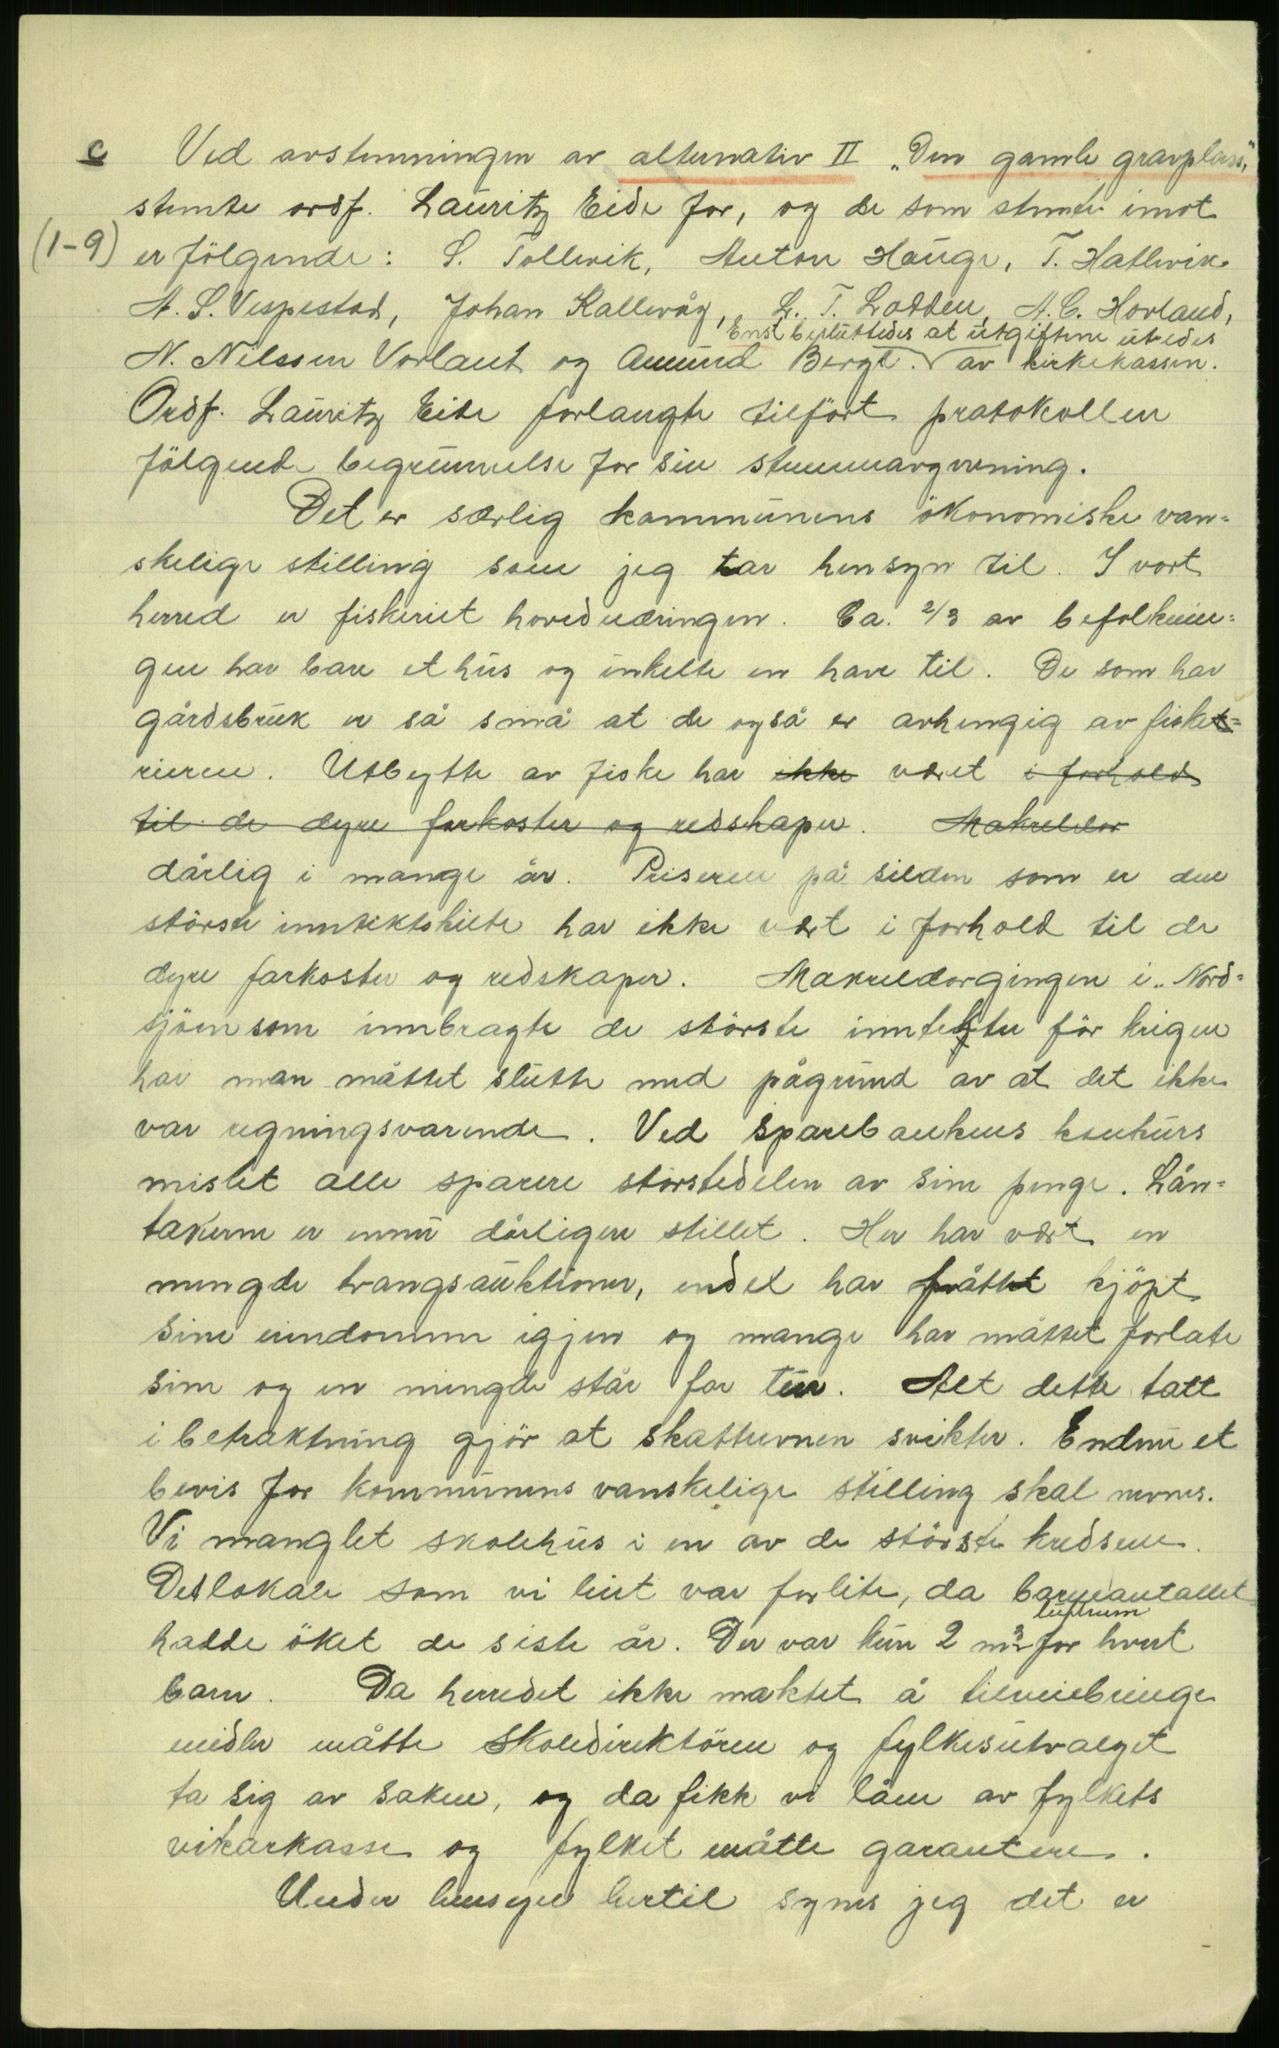 c Ved avstemningen av alternativ II „Den gamle gravplass„
stemte ordf. Lauritz Eide for, og de som stemte imot
(1-9) er fölgende: S. Tollevik, Anton Hauge, T. Hatlevik
A. S. Vespestad, Johan Kallevåg, L. T. Lodden, A. C. Hovland,
Enst besluttedes at utgiftene utredes
N. Nilssen Vorland og Amund Berge. av kirkekassen.
Ordf. Lauritz Eide forlangte tilfört protokollen
fölgende begrunnelse for sin stemmeavgivning.
Det er særlig kommunens ökonomiske van-
skelige stilling som jeg tar hensyn til. I vort
herred er fiskeriet hovednæringen. Ca. 2/3 av befolknin-
gen har bare et hus og enkelte en have til. De som har
gårdsbruk er så små at de også er avhengig av fiske-
rierene. Utbytte av fiske har ikke været i forhold
til de dyre farkoster og redskaper. Makreldor
dårlig i mange år. Priserne på silden som er den
störste inntektskilde har ikke vært i forhold til de
dyre farkoster og redskaper. Makreldorgingen i „Nord-
sjöen som innbragte de störste inntekter för krigen
har man måttet slutte med pågrund av at det ikke
var regningsvarende. Ved Sparebankens konkurs
mistet alle sparere störstedelen av sine penge. Lån-
takerne er ennu dårligere stillet. Her har vært en
mengde tvangsauktioner, endel har fått kjöpt
sine eiendomme igjen og mange har måttet forlate
sine og en mengde står for tur. Alt dette tatt
i betraktning gjör at skatteevnen svikter. Endnu et
bevis for kommunens vanskelige stilling skal nevnes.
Vi manglet skolehus i en av de störste kredsene.
Det lokale som vi leiet var for lite, da barneantallet
luftrum
hadde öket de siste år. Der var kun 2 m³ for hvert
barn. Da herredet ikke maktet å tilveiebringe
midler måtte Skoledirektören og fylkesutvalget
ta sig av saken, og da fikk vi låne av fylkets
vikarkasse og fylket måtte garantere.
Under hensyn hertil synes jeg det er